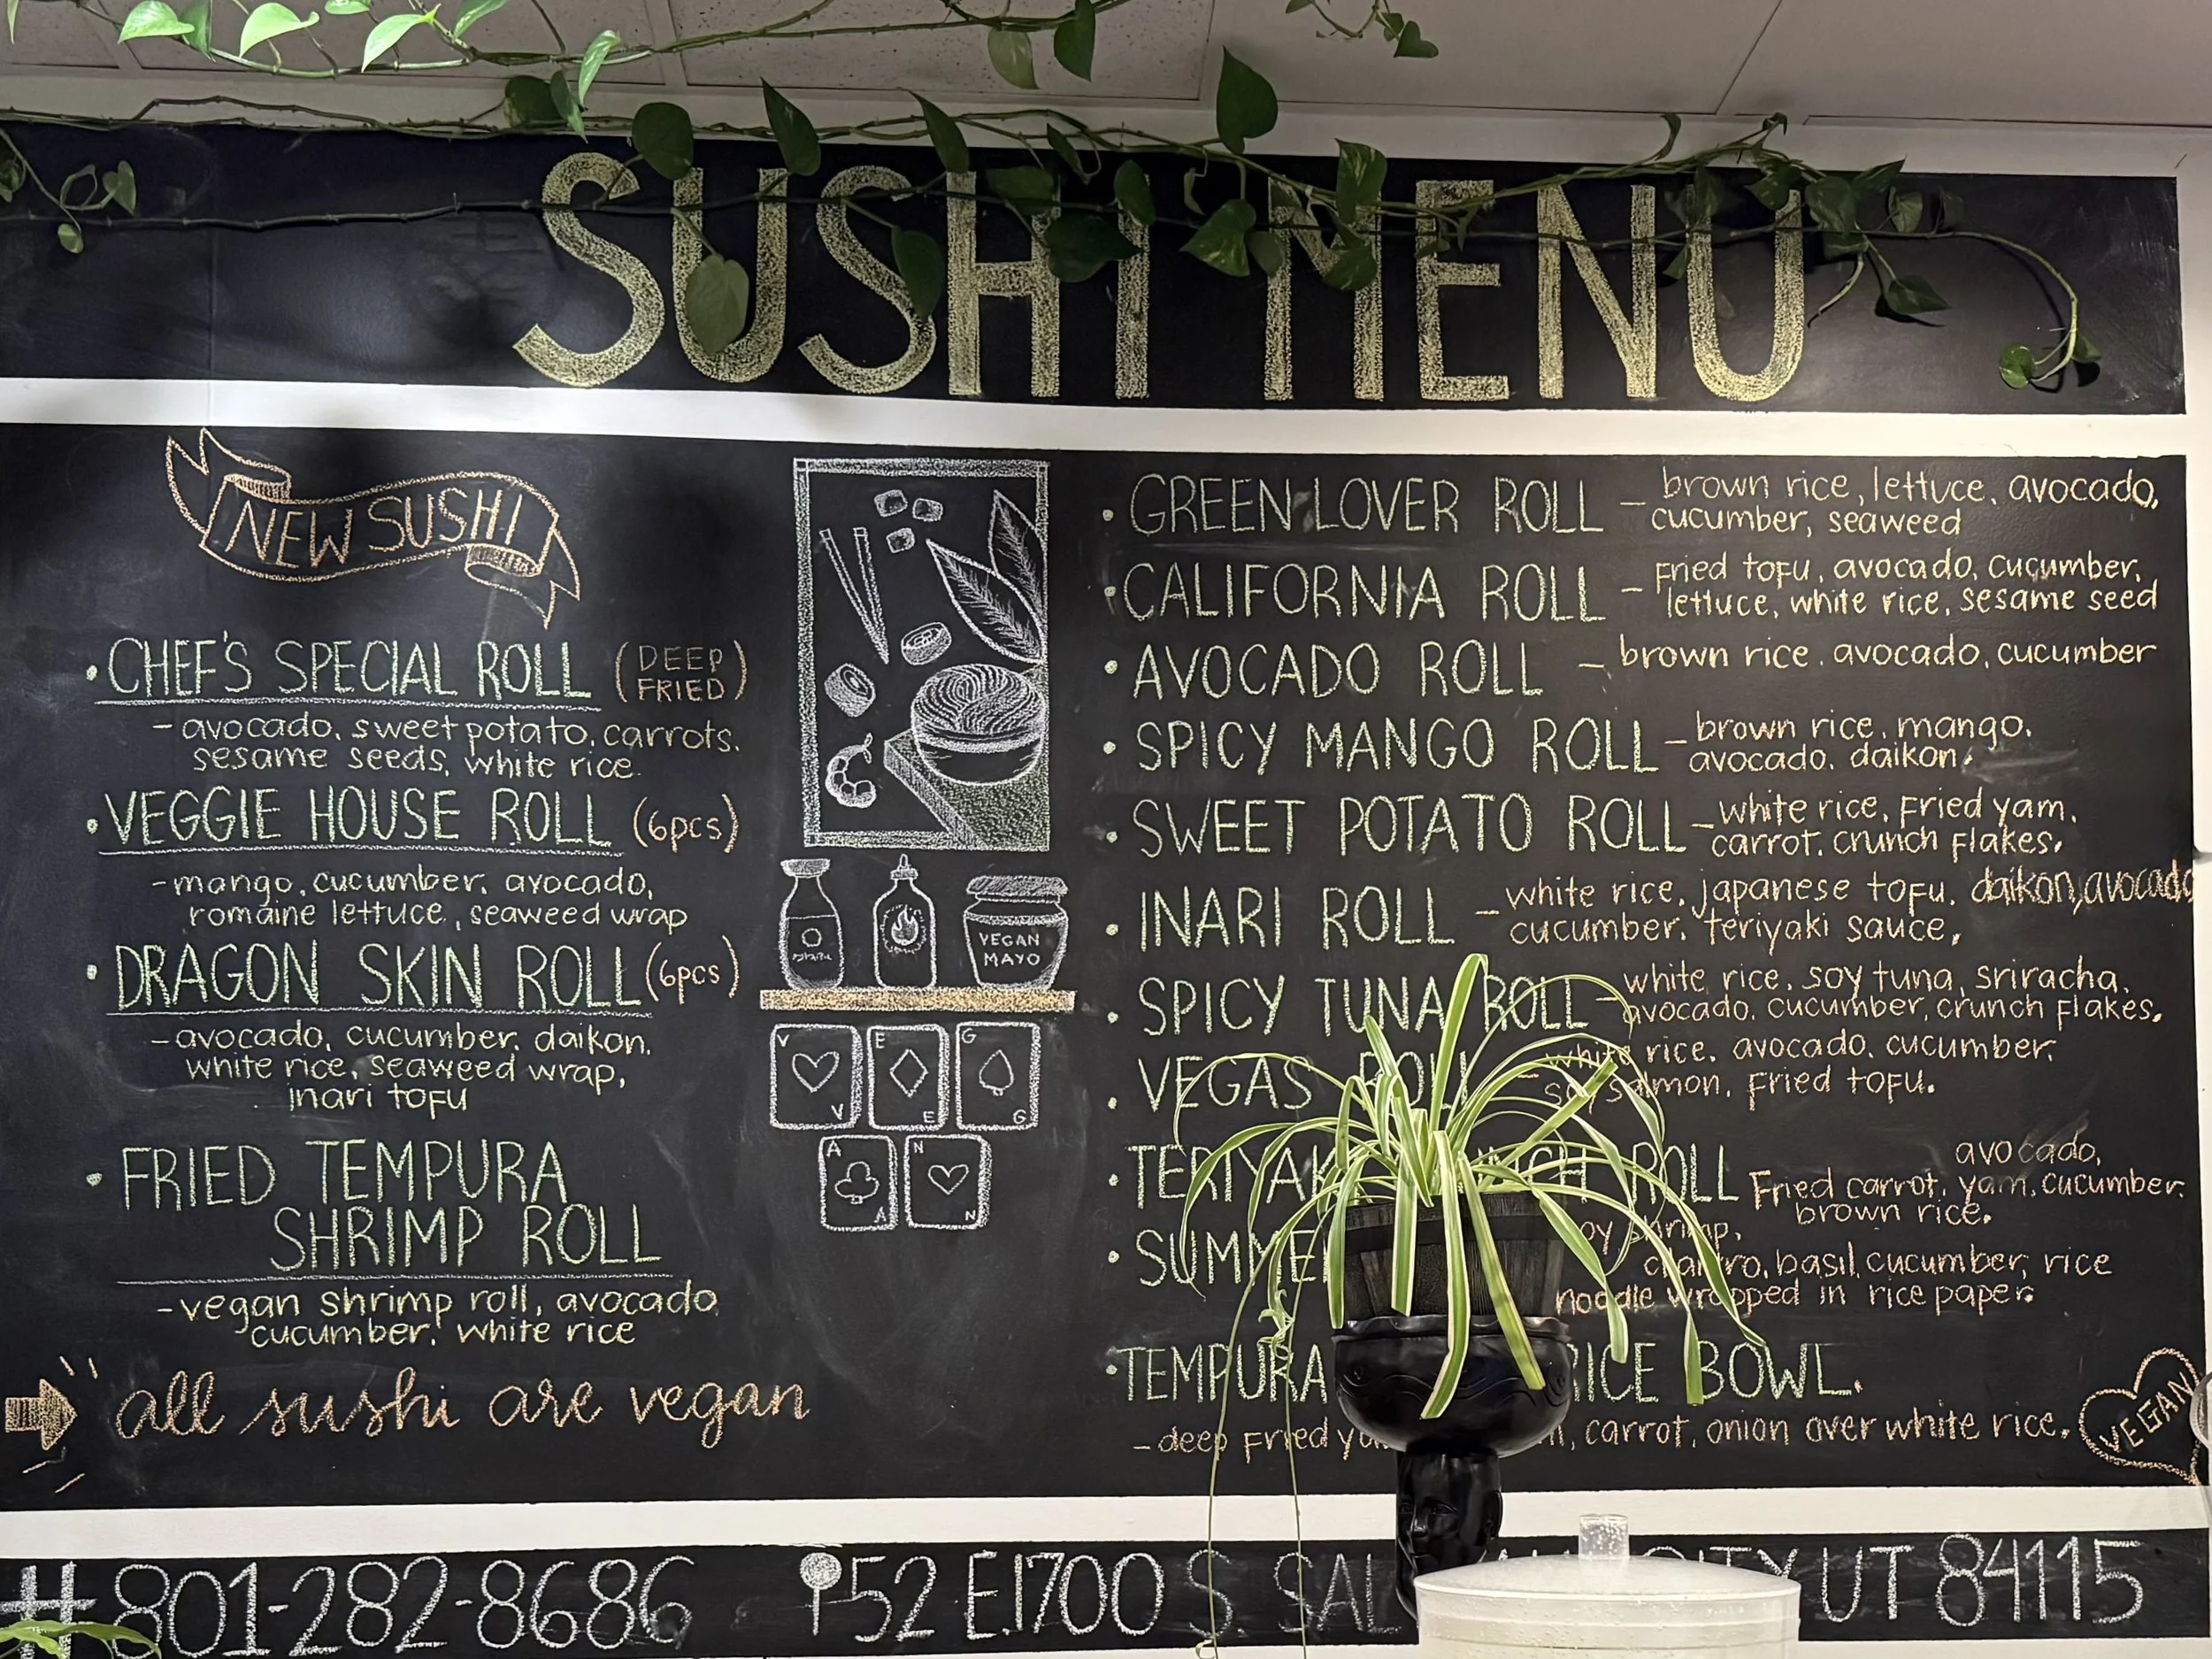 SUSHI MENU
NEW SUSHI
• CHEF'S SPECIAL ROLL (DEEP FRIED)
- avocado, sweet potato, carrots,
sesame seeds, white rice.
• VEGGIE HOUSE ROLL (6pcs)
- mango, cucumber, avocado,
romaine lettuce, seaweed wrap
• DRAGON SKIN ROLL (6pcs)
- avocado, cucumber, daikon,
white rice, seaweed wrap,
inari tofu
• FRIED TEMPURA
SHRIMP ROLL
- vegan shrimp roll, avocado
cucumber, white rice
all sushi are vegan
VEGAN
MAYO
V V
E E
G G
A A
N N
• GREEN LOVER ROLL - brown rice, lettuce, avocado,
cucumber, seaweed
• CALIFORNIA ROLL - fried tofu, avocado, cucumber,
lettuce, white rice, sesame seed
• AVOCADO ROLL - brown rice, avocado, cucumber
• SPICY MANGO ROLL - brown rice, mango,
avocado, daikon.
• SWEET POTATO ROLL - white rice, fried yam,
carrot, crunch flakes.
• INARI ROLL - white rice, japanese tofu, daikon, avocado
cucumber, teriyaki sauce,
• SPICY TUNA ROLL - white rice, soy tuna, sriracha,
avocado, cucumber, crunch flakes.
• VEGAS ROLL - white rice, avocado, cucumber,
soy salmon, fried tofu.
• ROLL avocado,
Fried carrot, yam, cucumber,
brown rice.
• shrimp,
cilantro, basil, cucumber, rice
noodle wrapped in rice paper.
• TEMPURA RICE BOWL.
- deep fried carrot, onion over white rice.
VEGAN
#801-282-8686 52 E.1700 S. CITY UT 84115